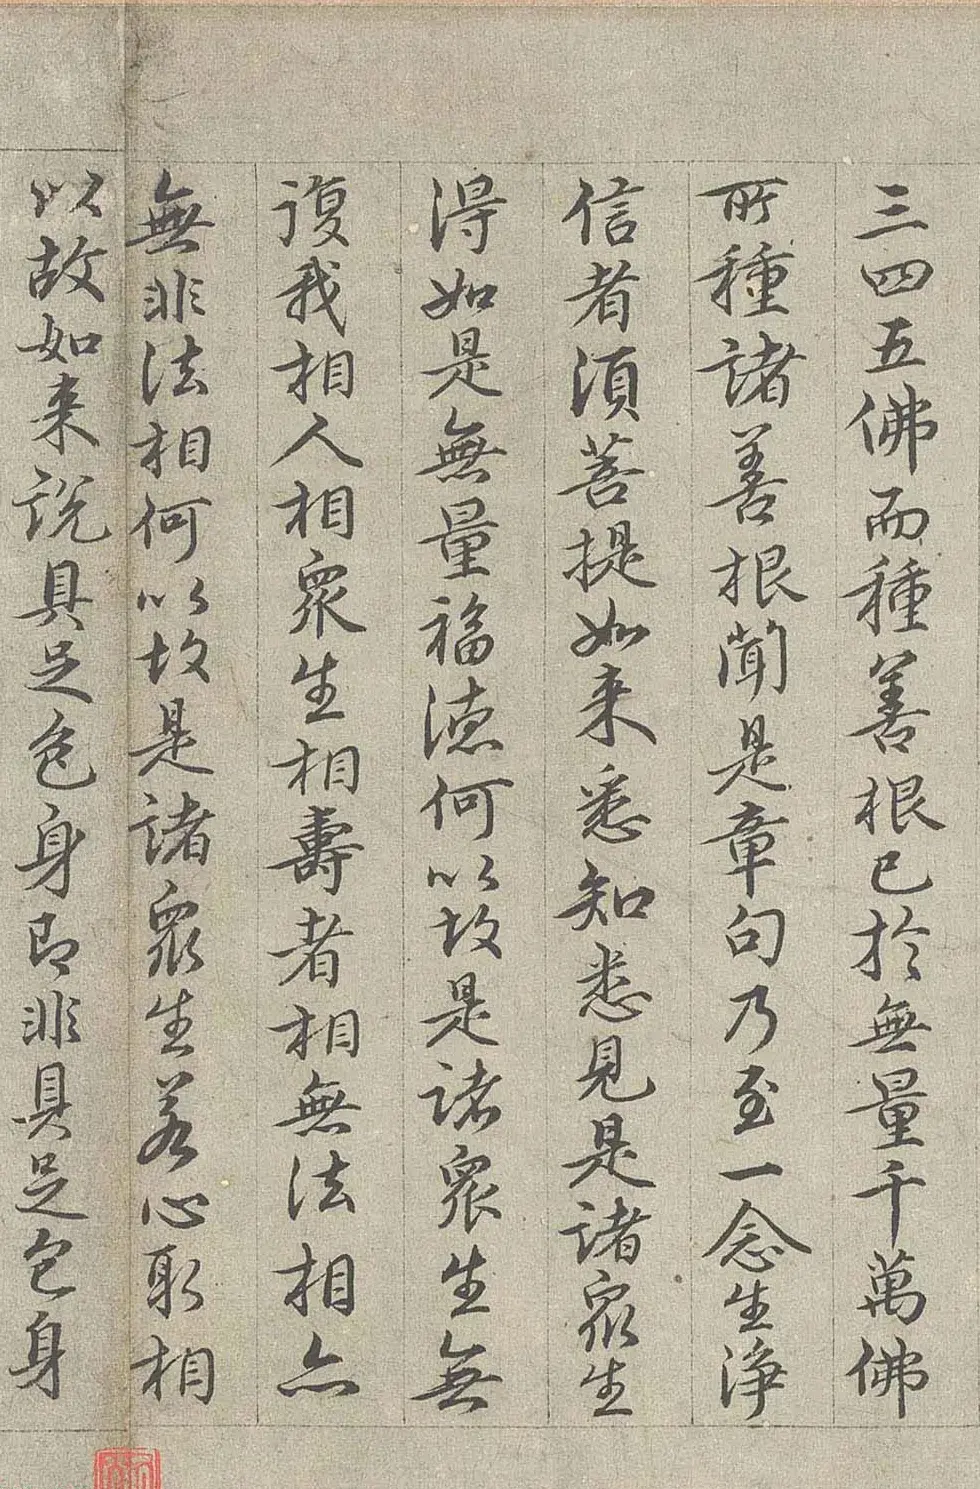 三四五佛而種善根已於無量千萬佛
所種諸善根聞是章句乃至一念生淨
信者須菩提如来悉知悉見是諸衆生
得如是無量福德何以故是諸衆生無
復我相人相衆生相壽者相無法相亦
無非法相何以故是諸衆生若心取相
以故如来說具足色身即非具足色身